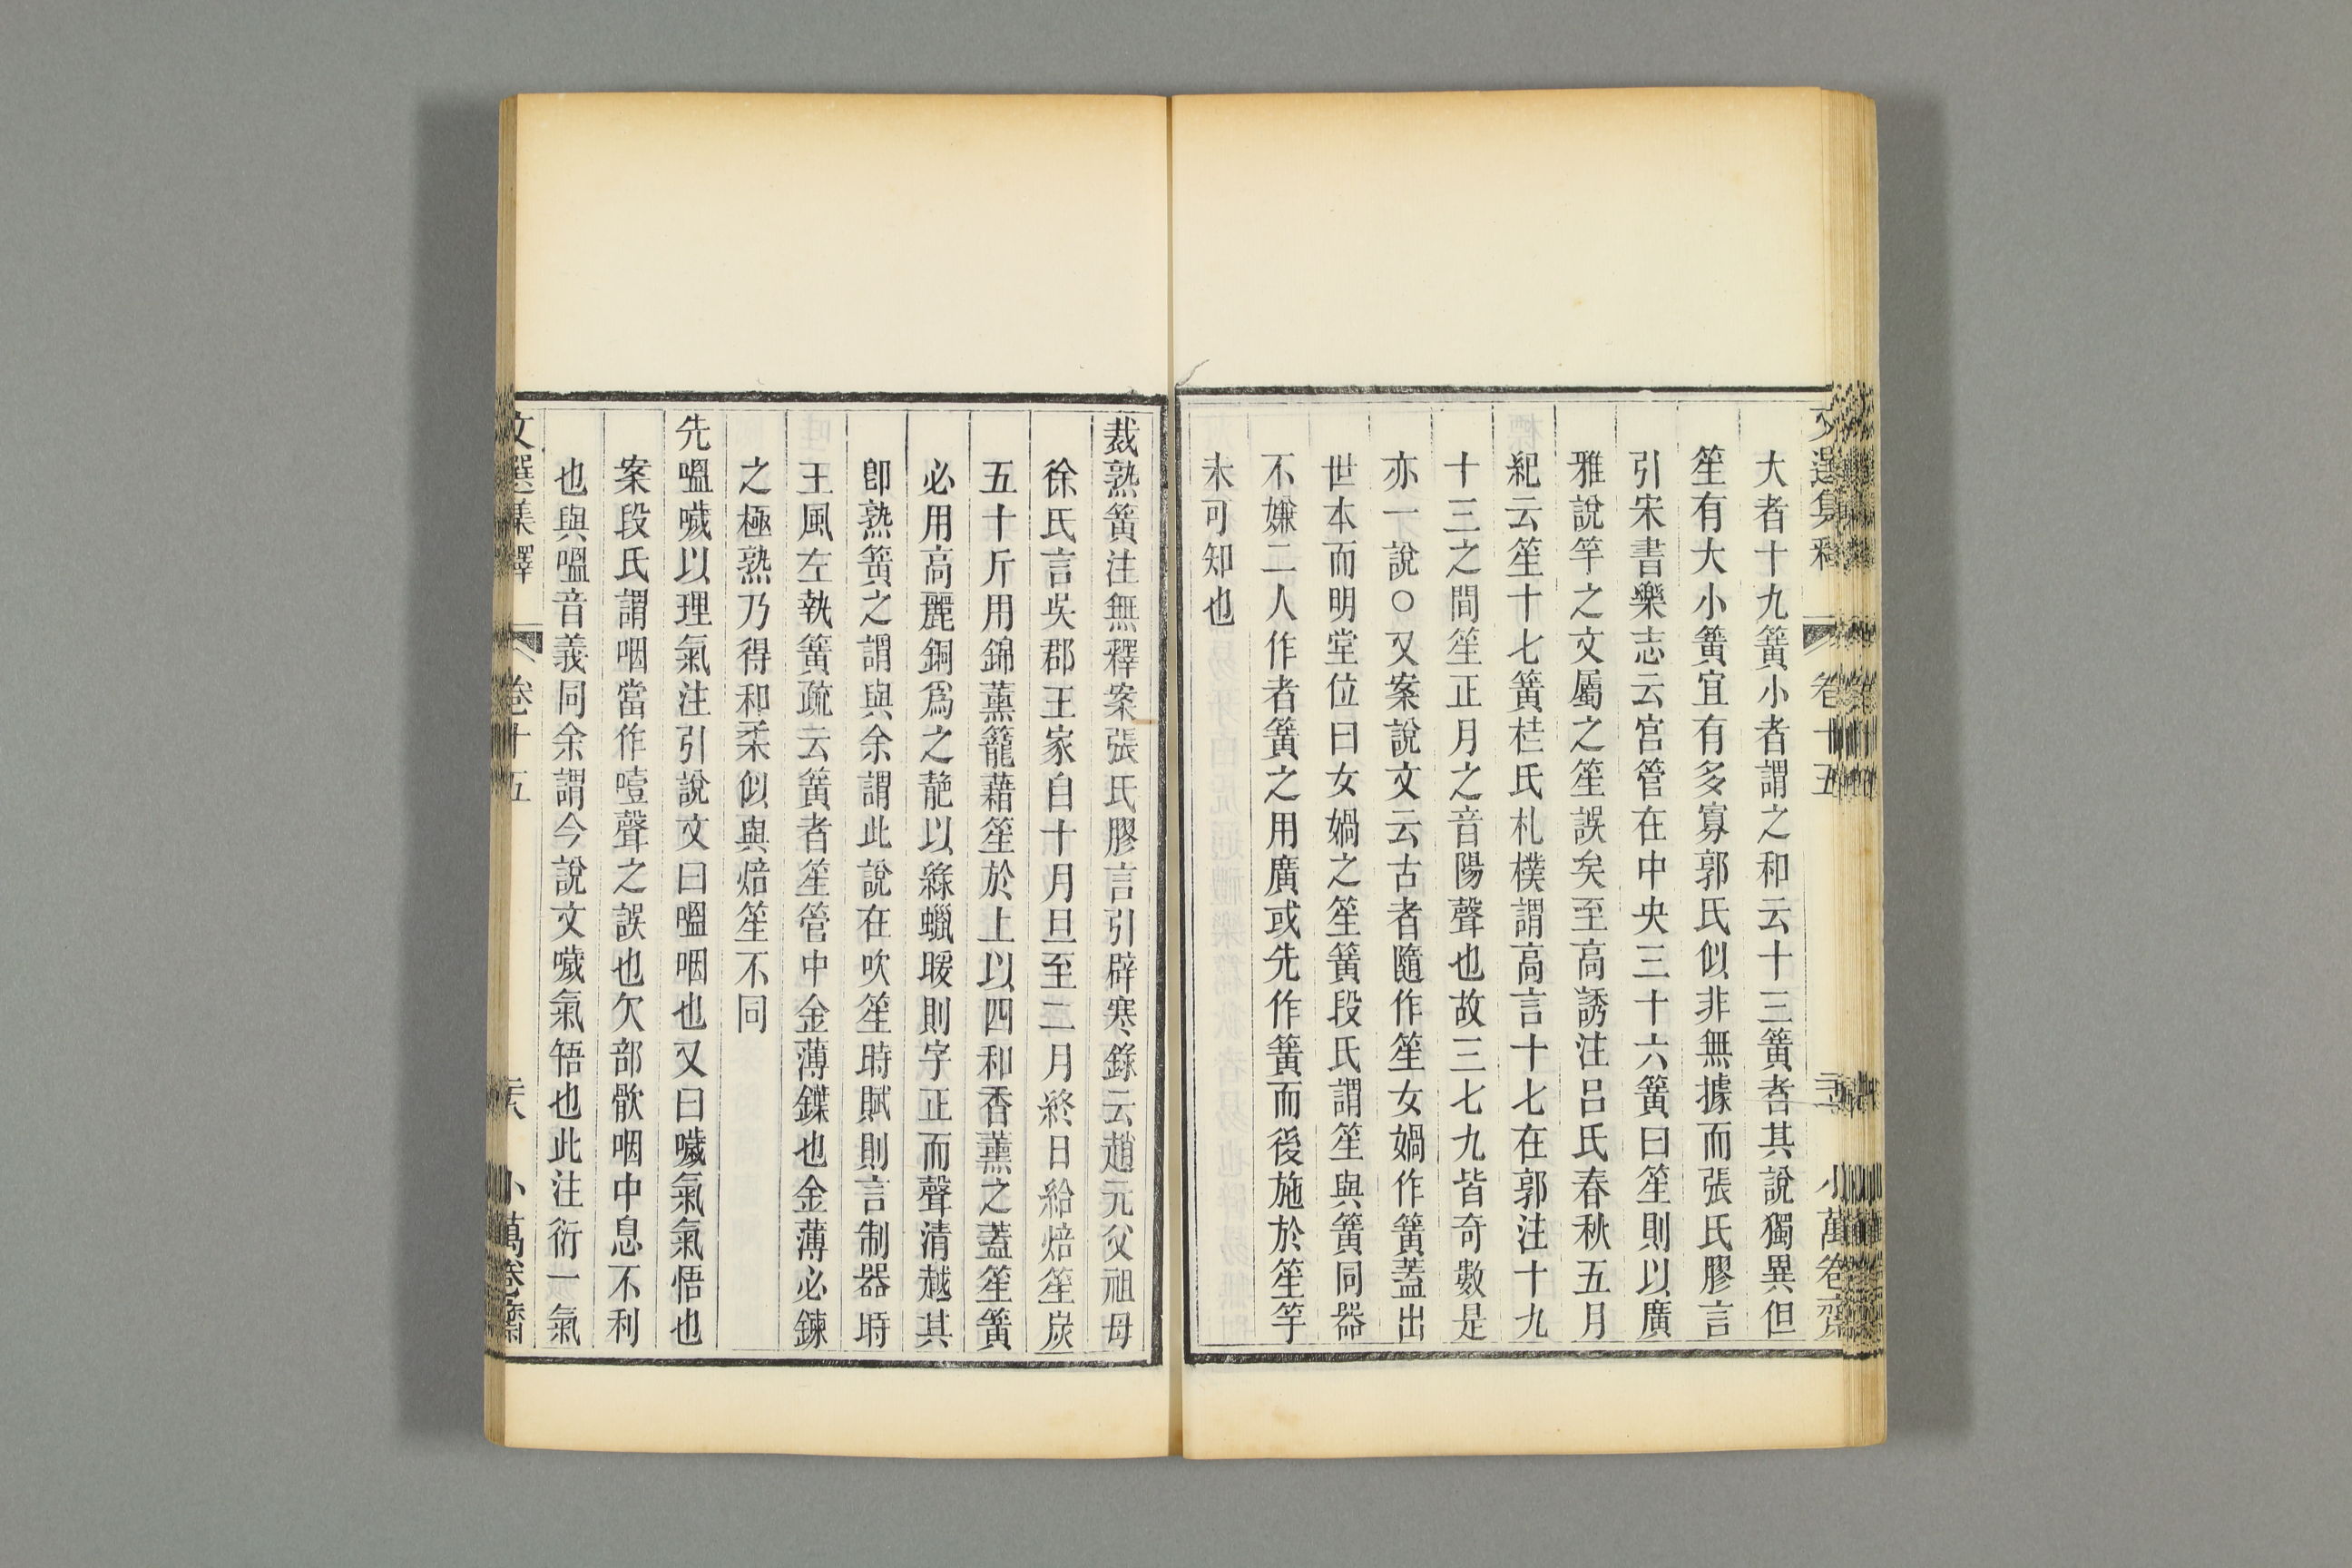 大者十九簧小者謂之和云十三簧者其說獨異但
笙有大小簧宜有多寡郭氏似非無據而張氏膠言
引宋書樂志云宮管在中央三十六簧曰笙則以廣
雅說竽之文屬之笙誤矣至高誘注呂氏春秋五月
紀云笙十七簧桂氏札樸謂高言十七在郭注十九
十三之間笙正月之音陽聲也故三七九皆奇數是
亦一說○又案說文云古者隨作笙女媧作簧蓋出
世本而明堂位曰女媧之笙簧段氏謂笙與簧同器
不嫌二人作者簧之用廣或先作簧而後施於笙竽
未可知也
裁熟簧注無釋案張氏膠言引辟寒錄云趙元父祖母
徐氏言吳郡王家自十月旦至二月終日給焙笙炭
五十斤用錦薰籠藉笙於上以四和香薰之蓋笙簧
必用高麗銅為之靘以綠蠟暖則字正而聲清越其
卽熟簧之謂與余謂此說在吹笙時賦則言制器時
王風左執簧疏云簧者笙管中金薄鍱也金薄必鍊
之極熟乃得和柔似與焙笙不同
先嗢噦以理氣注引說文曰嗢咽也又曰噦氣氣悟也
案段氏謂咽當作噎聲之誤也欠部㰶咽中息不利
也與嗢音義同余謂今說文噦氣啎也此注衍一氣
文選集釋 卷十五 小萬卷齋